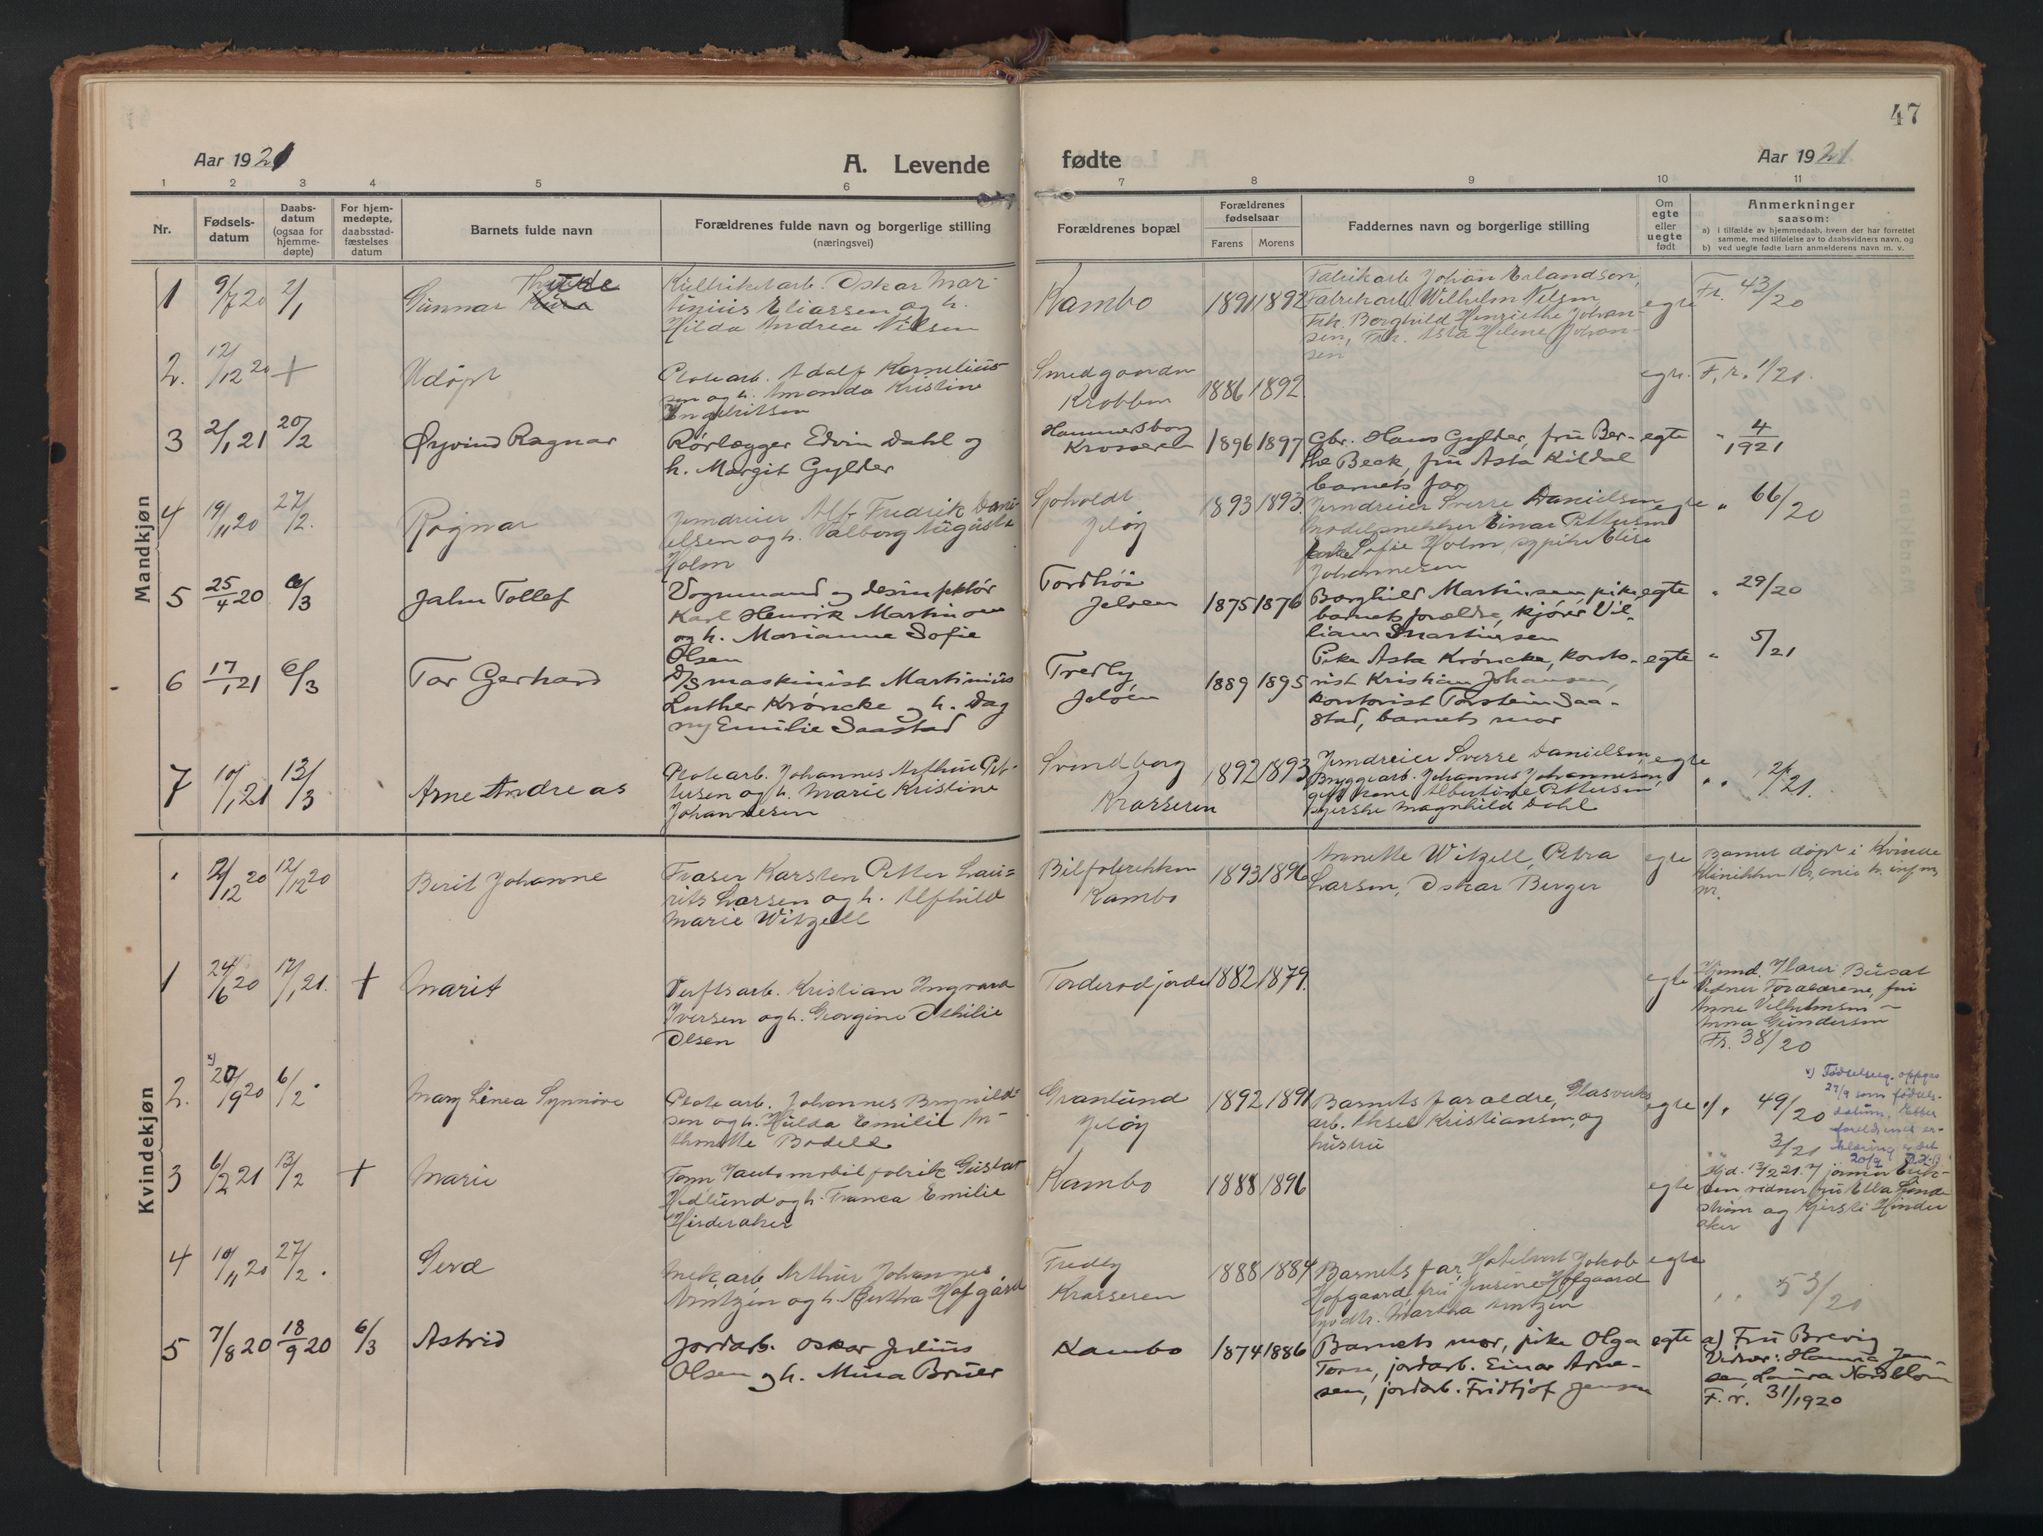 47
Aar 1921
A. Levende
fødte
Aar 1921
1 2 3 4 5 6 7 8 9 10 11
Nr.
Fødsels-
datum
Daabs-
datum
(ogsaa for
hjemme-
døpte)
For hjem-
medøpte,
daabsstad-
fæstelses
datum
Barnets fulde navn
Forældrenes fulde navn og borgerlige stilling
(næringsvei)
Forældrenes bopæl
Forældrenes
fødselsaar
Farens
Morens
Faddernes navn og borgerlige stilling
Om
egte
eller
uegte
født
Anmerkninger
saasom:
a) i tilfælde av hjemmedaab, hvem der har forrettet
samme, med tilføielse av to daabsvidners navn, og
b) ved uegte født barn anmelderens navn m. v.
Mandkjøn
1 9/7 20 2/1
Gunnar
arb. Oskar Mar-
tinius Eliassen og h.
Hilda Andrea Nilsen
Kambo
1891 1892
Fabrikarb. Johan Erlandsen,
Fabrikarb. Wilhelm Nilsen
Frk. Borghild Henriette Johan-
sen, Frk. Asta Helene Johan-
sen
egte
Fr. 43/20
2. 12/12 20 +
Udøpt
Plotearb. Adolf Kornelius-
sen og h. Amanda Kristine
Ingebritsen
Smedgaarden
Krobben
1886 1892
egte.
F. r. 1/21.
3 2/1 21 20/2
Øyvind Ragnar
Rørlægger Edvin Dahl og
h. Margit Gylder
Hammersborg
Krosseren
1896 1897
Gbr. Hans Gylder, fru Ber-
the Beck, fru Asta Kildal
barnets far
egte
" 4/1921
4 19/11 20 27/2.
Ragnar
Jerndreier Alf Fredrik Dani-
elsen og h. Valborg Augusta
Holm
Sjoholdt
Jeløy
1893 1893.
Jerndreier Sverre Danielsen
modelsnekker Einar Pettersen
Sofie Holm, sypike Elise
Johannesen
egte
" 66/20
5 25/4 20 6/3
Jahn Tollef
Vognmand og desinfektør
Karl Henrik Martinsen
og h. Marianne Sofie
Olsen
Tordhöi
Jeløen
1875 1876
Borghild Martinsen, pike,
barnets forældre, kjører Vil-
liam Martinsen
egte
" 29/20
6 17/1 21 6/3
Tor Gerhard
D/S maskinist Martinius
Luther Krøncke og h. Dag
ny Emilie Saastad
Fredly,
Jeløen
1889 1895
Pike Asta Krøncke, konto-
rist Kristian Johansen,
kontorist Torstein Saa-
stad, barnets mor
egte
" 5/21
7 10/1 21 13/3
Arne Andreas
Plotearb. Johannes Arthur Pet-
tersen og h. Marie Kristine
Johannesen
Svendborg
Krosseren
1892 1893
Jerndreier Sverre Danielsen,
Bryggearb. Johannes Johannesen,
gift kone Albertine Pettersen,
syerske Magnhild Dahl
egte
" " 12/21.
Kvindekjøn
12/12 20 12/12 20
Berit Johanne
Fraser Karsten Petter Lau-
rits Larsen og h. Alfhild
Marie Witzell
Bilfabrikken
Kambo
1893 1896
Annette Witzell, Petra
Larsen, Oskar Berger
egte
Barnet døpt i Kvinde
klinikken
1 24/6 20 17/1 21. +
Marit
Verftsarb. Kristian Ingvard
Iversen og h. Georgine Othilie
Olsen
Torderodjordet
1882 1879.
egte
Vidner Forældrene, fru
Anne Vilhelmsen –
Anna Gundersen
Fr. 38/20
2. x) 20/9 20 6/2.
Mary Linea Synnøve
Plotearb. Johannes Brynild-
sen og h. Hulda Emilie An-
thonette Bodell
Granlund
Jeløy
1892 1891
Barnets forældre, Glasverks
arb. Aksel Kristiansen, og
hustru
egte
" 49/20
x) Fødselseg. oppgav
27/9 som fødsels-
datum. Etter
foreldrenes er-
klæring er det
20/9
3 6/2 21 13/2 +
Marie
Tom. i automobilfabrik Gustav
Hedlund og h. Franca Emilie
Hinderaker
Kambo
1888 1896
egte
3/21
Hjd. 13/2 21 jormor Erik-
sen, vidner fru Ella Lind
strøm og Kjersti Hinder
aker
4 10/11 20 27/2.
Gerd
Mek. arb. Arthur Johannes
Arntzen og h. Bertha Hofgård
Fredly
Krosseren
1888 1884
Barnets far, Hotelvert Jakob
Hofgaard, fru Jensine Hofgaard
Martha Arntzen
egte
" " 53/20
5 7/8 20 18/9 20 6/3
Astrid
Jordarb. Oskar Julius
Olsen og h. Mina Bruer
Kambo
1874 1886
Barnets mor, pike Olga
Torse, jordarb. Einar Arne-
sen, jordarb. Fridtjof Jensen
egte
a) Fru Brevig
Vidner: Hanna Jen-
sen, Laura Nordblom
F. r. 31/1920